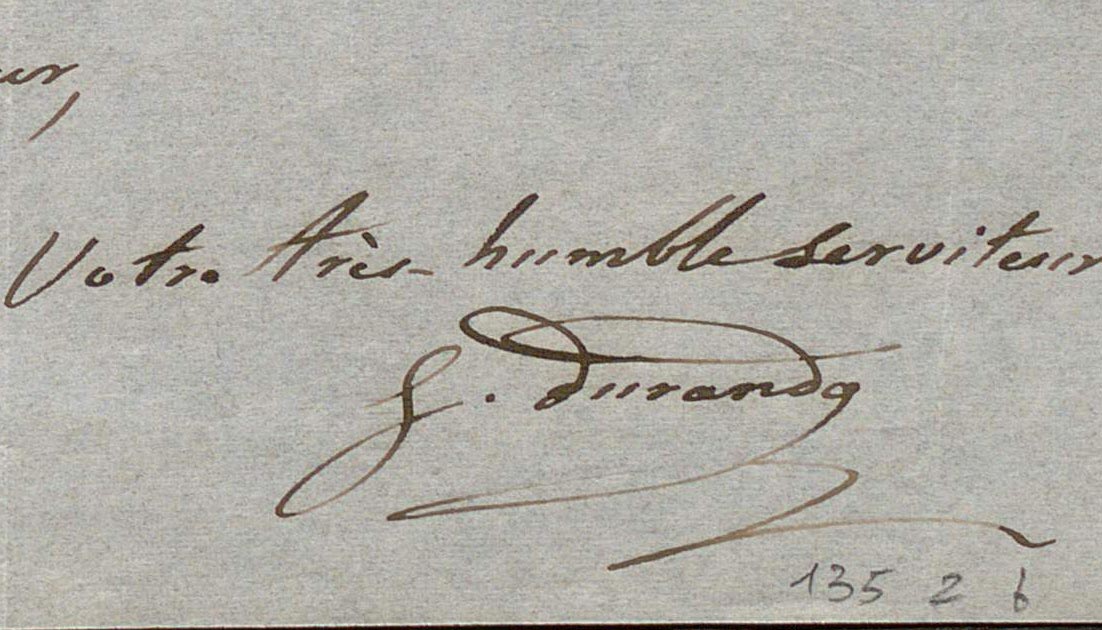 Votre très humble serviteur
J. Durand
135 2 b